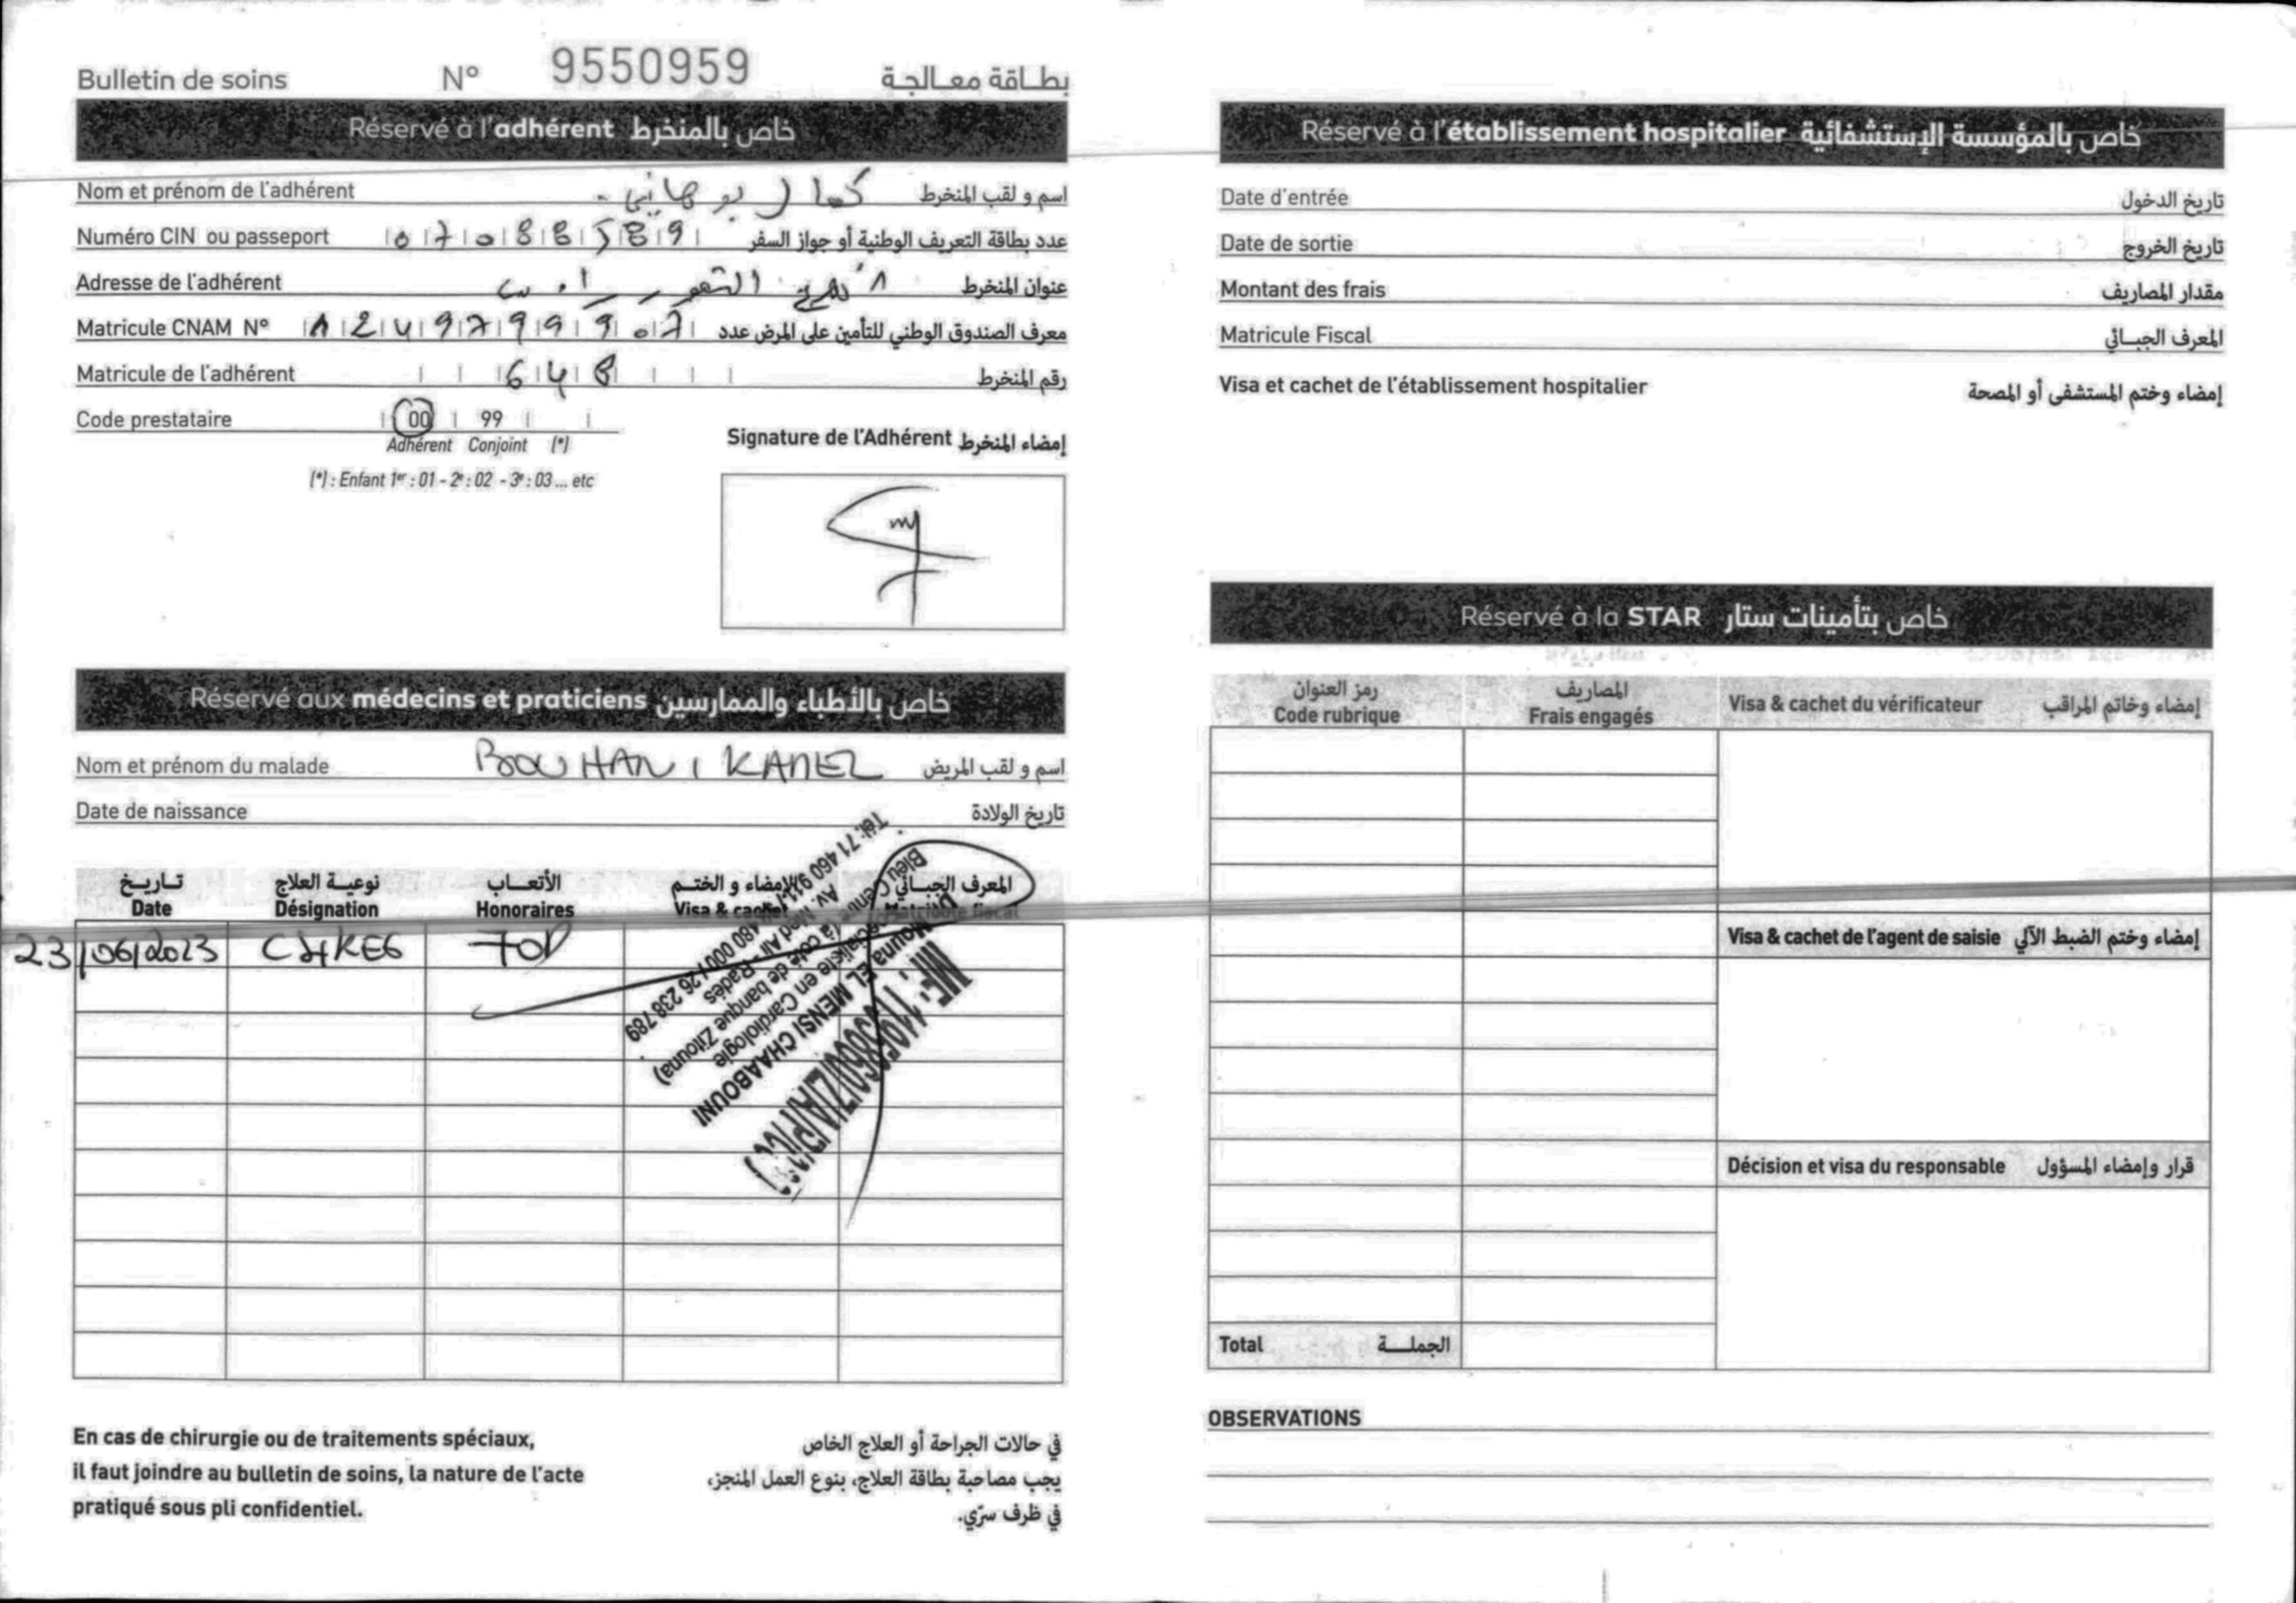 Bulletin de soins N° 9550959 بطاقة معالجة
Réservé à l'adhérent خاص بالمنخرط
Nom et prénom de l'adhérent كمال بوهاني اسم و لقب المنخرط
Numéro CIN ou passeport 07088589 عدد بطاقة التعريف الوطنية أو جواز السفر
Adresse de l'adhérent عنوان المنخرط
Matricule CNAM N° معرف الصندوق الوطني للتأمين على المرض عدد
Matricule de l'adhérent 648 رقم المنخرط
Code prestataire 00 99
Adhérent Conjoint (*)
(*) : Enfant 1er : 01 - 2e : 02 - 3e : 03 ... etc
Signature de l'Adhérent إمضاء المنخرط
Réservé aux médecins et praticiens خاص بالأطباء والممارسين
Nom et prénom du malade BOUHANI KAMEL اسم و لقب المريض
Date de naissance تاريخ الولادة
تاريخ نوعية العلاج الأتعاب الإمضاء و الختم المعرف الجبائي
Date Désignation Honoraires Visa & cachet Matricule fiscal
23/06/2023 70D
Mouna EL MENSI CHAABOUNI
Spécialiste en Cardiologie
(à coté de banque Zitouna)
Av. Med Ali - Radès
26 238 789
En cas de chirurgie ou de traitements spéciaux,
il faut joindre au bulletin de soins, la nature de l'acte
pratiqué sous pli confidentiel.
في حالات الجراحة أو العلاج الخاص
يجب مصاحبة بطاقة العلاج، بنوع العمل المنجز،
في ظرف سرّي.
Réservé à l'établissement hospitalier خاص بالمؤسسة الإستشفائية
Date d'entrée تاريخ الدخول
Date de sortie تاريخ الخروج
Montant des frais مقدار المصاريف
Matricule Fiscal المعرف الجبائي
Visa et cachet de l'établissement hospitalier إمضاء وختم المستشفى أو المصحة
Réservé à la STAR خاص بتأمينات ستار
رمز العنوان المصاريف
Code rubrique Frais engagés Visa & cachet du vérificateur إمضاء وخاتم المراقب
Visa & cachet de l'agent de saisie إمضاء وختم الضبط الآلي
Décision et visa du responsable قرار وإمضاء المسؤول
Total الجملة
OBSERVATIONS